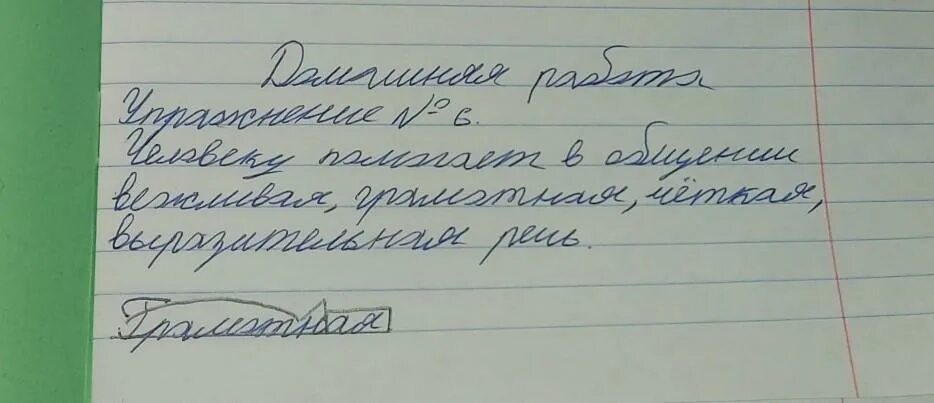 Домашняя работа
Упражнение № 6.
Человеку помогает в общении
вежливая, грамотная, чёткая,
выразительная речь.
Грамотная